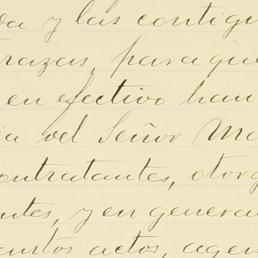 da y las contigu
trazas, para que
en efectivo han
ia del Señor Ma
contratantes, otorg
ntes, y en general
cuantos actos, agen